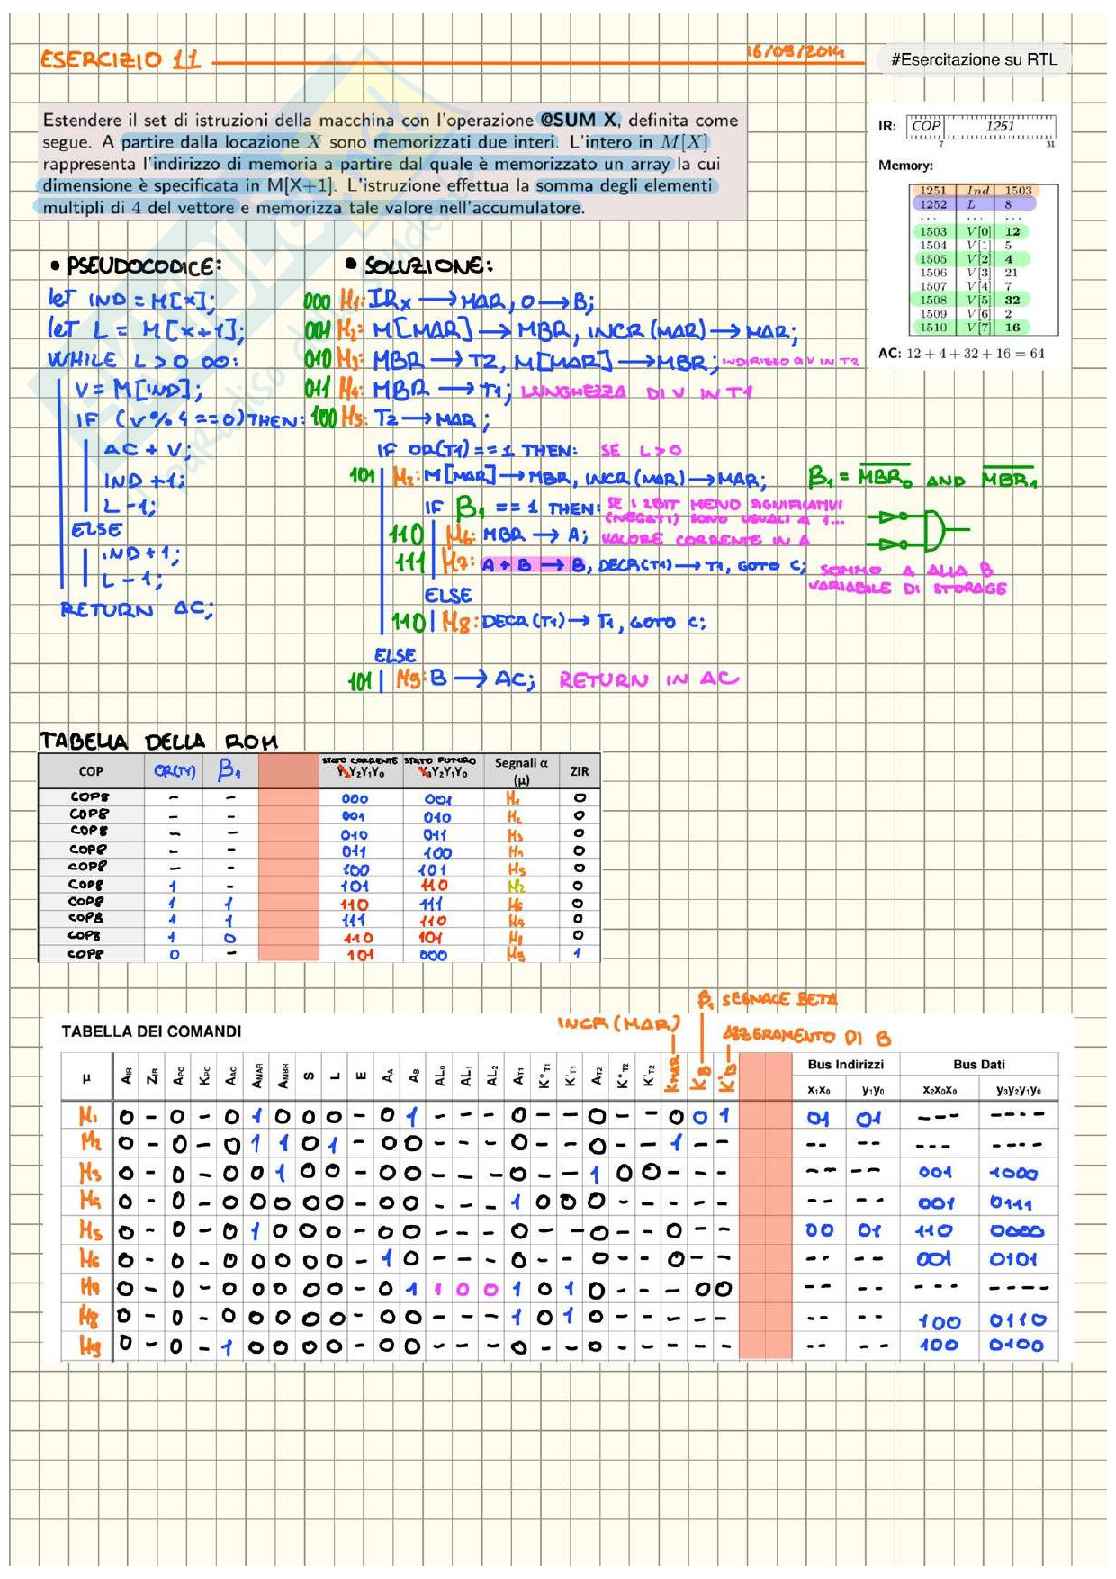 ESERCIZIO 11
16/09/2014
#Esercitazione su RTL
Estendere il set di istruzioni della macchina con l'operazione @SUM X, definita come
segue. A partire dalla locazione X sono memorizzati due interi. L'intero in M[X]
rappresenta l'indirizzo di memoria a partire dal quale è memorizzato un array la cui
dimensione è specificata in M[X+1]. L'istruzione effettua la somma degli elementi
multipli di 4 del vettore e memorizza tale valore nell'accumulatore.
IR: COP 1251
7 31
Memory:
1251 Ind 1503
1252 L 8
... ... ...
1503 V[0] 12
1504 V[1] 5
1505 V[2] 4
1506 V[3] 21
1507 V[4] 7
1508 V[5] 32
1509 V[6] 2
1510 V[7] 16
AC: 12 + 4 + 32 + 16 = 64
• PSEUDOCODICE:
let IND = M[X];
let L = M[X+1];
WHILE L>0 DO:
V = M[IND];
IF (V%4==0) THEN:
AC + V;
IND +1;
L -1;
ELSE
IND +1;
L -1;
RETURN AC;
• SOLUZIONE:
000 M1: IRx → MAR, 0 → B;
001 M2: M[MAR] → MBR, INCR(MAR) → MAR;
010 M3: MBR → T2, M[MAR] → MBR; INDIRIZZO DI V IN T2
011 M4: MBR → T1; LUNGHEZZA DI V IN T1
100 M5: T2 → MAR;
IF OR(T1) == 1 THEN: SE L>0
101 M2: M[MAR] → MBR, INCR(MAR) → MAR;
IF β1 == 1 THEN: SE I 2 BIT MENO SIGNIFICATIVI
(NEGATI) SONO UGUALI A 1...
110 M6: MBR → A; VALORE CORRENTE IN A
111 M7: A + B → B, DECR(T1) → T1, GOTO C; SOMMO A ALLA B
VARIABILE DI STORAGE
ELSE
110 M8: DECR(T1) → T1, GOTO C;
ELSE
101 M9: B → AC; RETURN IN AC
β1 = MBR0 AND MBR1
TABELLA DELLA ROM
COP OR(T1) β1 STATO CORRENTE Y3Y2Y1Y0 STATO FUTURO Y3Y2Y1Y0 Segnali α (μ) ZIR
COP8 - - 000 001 M1 0
COP8 - - 001 010 M2 0
COP8 - - 010 011 M3 0
COP8 - - 011 100 M4 0
COP8 - - 100 101 M5 0
COP8 1 - 101 110 M2 0
COP8 1 1 110 111 M6 0
COP8 1 1 111 110 M7 0
COP8 1 0 110 101 M8 0
COP8 0 - 101 000 M9 1
β1 SEGNALE BETA
INCR(MAR)
AZZERAMENTO DI B
TABELLA DEI COMANDI
Bus Indirizzi Bus Dati
μ AIR ZIR APC KPC AAC AMAR AMBR S L E AA AB AL0 AL1 AL2 AT1 K°T1 K'T1 AT2 K°T2 K'T2 KMAR KB K'B X1X0 y1y0 X2X0X0 y3y2y1y0
M1 0 - 0 - 0 1 0 0 0 - 0 1 - - - 0 - - 0 - - 0 0 1 01 01 --- ----
M2 0 - 0 - 0 1 1 0 1 - 0 0 - - - 0 - - 0 - - 1 - - -- -- --- ----
M3 0 - 0 - 0 0 1 0 0 - 0 0 - - - 0 - - 1 0 0 - - - -- -- 001 1000
M4 0 - 0 - 0 0 0 0 0 - 0 0 - - - 1 0 0 0 - - - - - -- -- 001 0111
M5 0 - 0 - 0 1 0 0 0 - 0 0 - - - 0 - - 0 - - 0 - - 00 01 110 0000
M6 0 - 0 - 0 0 0 0 0 - 1 0 - - - 0 - - 0 - - 0 - - -- -- 001 0101
M7 0 - 0 - 0 0 0 0 0 - 0 1 1 0 0 1 0 1 0 - - - 0 0 -- -- --- ----
M8 0 - 0 - 0 0 0 0 0 - 0 0 - - - 1 0 1 0 - - - - - -- -- 100 0110
M9 0 - 0 - 1 0 0 0 0 - 0 0 - - - 0 - - 0 - - - - - -- -- 100 0100